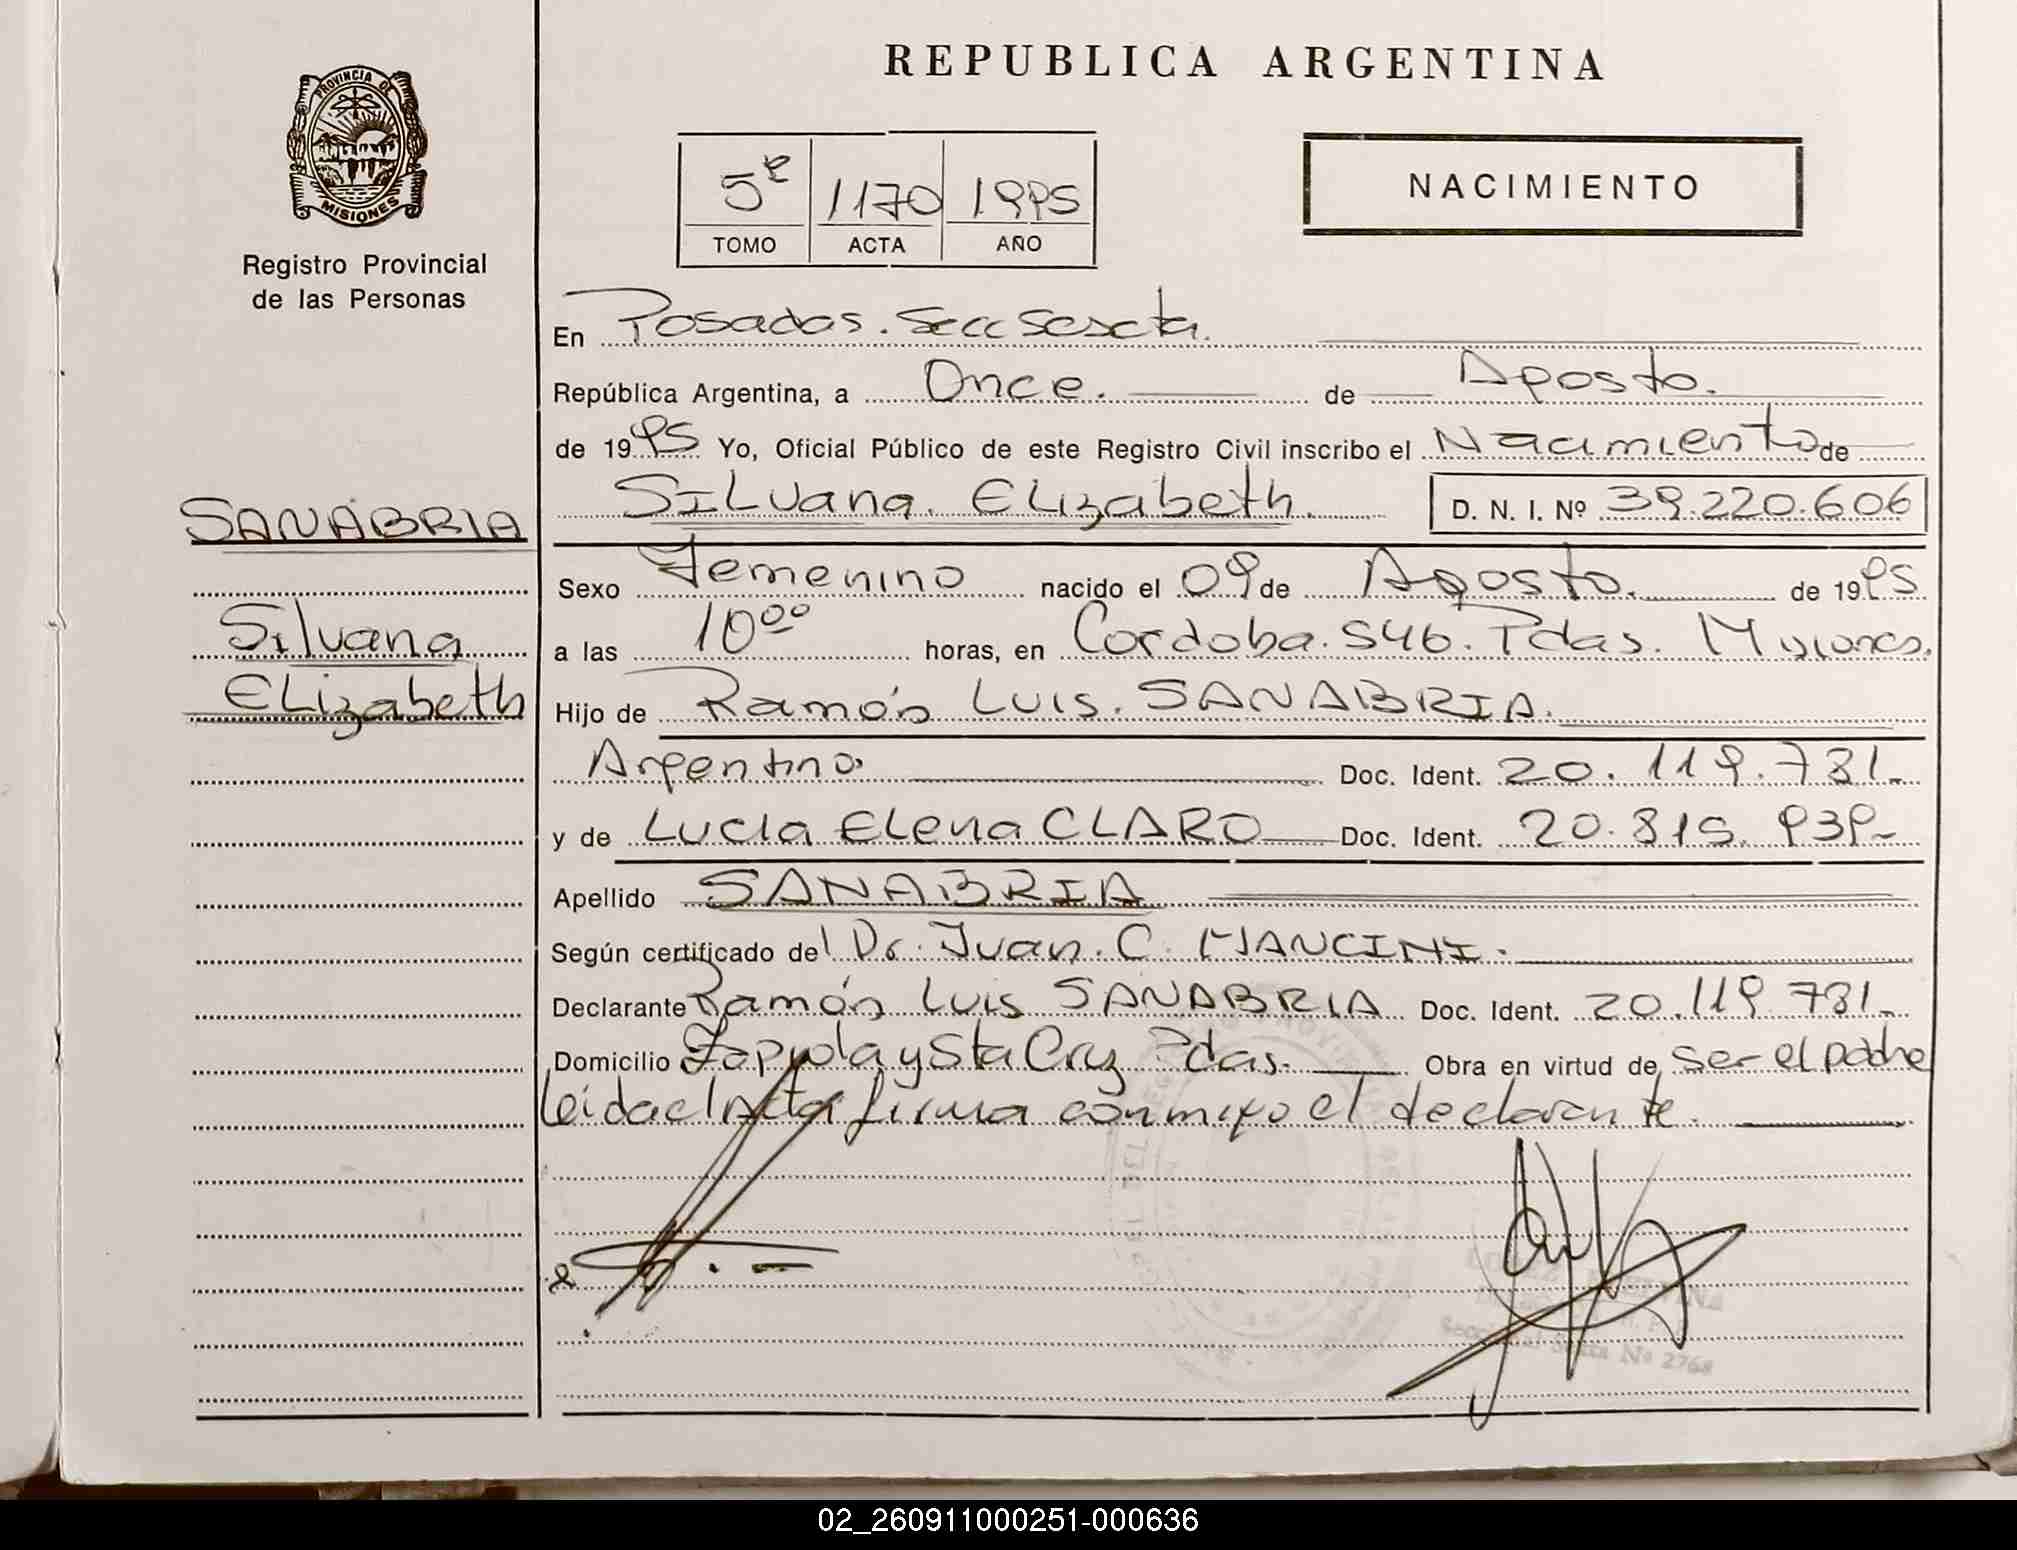 REPUBLICA ARGENTINA
PROVINCIA DE
MISIONES
Registro Provincial
de las Personas
5º 1170 1995
TOMO ACTA AÑO
NACIMIENTO
En Posadas. Secc Sexta.
República Argentina, a Once. de Agosto.
de 1995 Yo, Oficial Público de este Registro Civil inscribo el Nacimiento de
SILvana. ELizabeth. D. N. I. Nº 39.220.606
SANABRIA
Silvana
ELizabeth
Sexo Femenino nacido el 09 de Agosto. de 1995
a las 10ºº horas, en Cordoba. 546. Pdas. Misiones.
Hijo de Ramón Luis. SANABRIA.
Argentino. Doc. Ident. 20.119.731.
y de Lucia ELena CLARO Doc. Ident. 20.815.939
Apellido SANABRIA
Según certificado del Dr. Juan. C. MANCINI.
Declarante Ramón Luis SANABRIA Doc. Ident. 20.119.731.
Domicilio Zapiola y Sta Cruz Pdas. Obra en virtud de ser el padre
leida el Acta firma conmigo el declarante.
Nº 2768
02_260911000251-000636